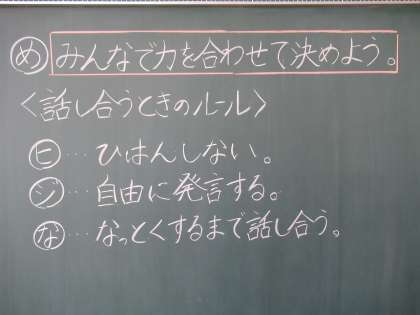 め みんなで力を合わせて決めよう。
〈話し合うときのルール〉
ヒ…ひはんしない。
ジ…自由に発言する。
な…なっとくするまで話し合う。